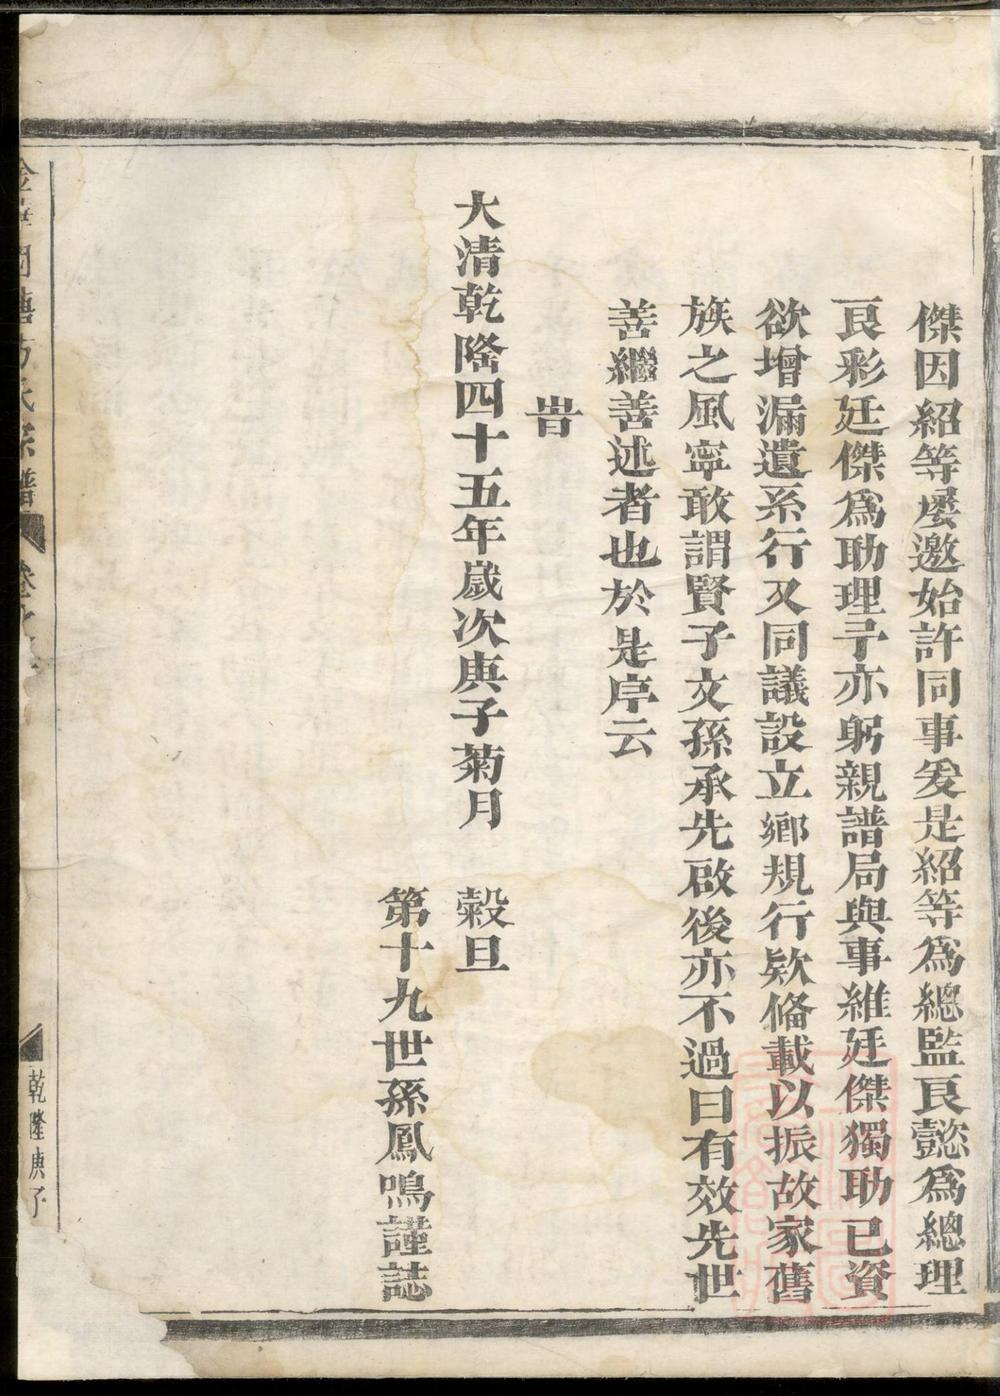 傑因紹等屡邀始許同事爰是紹等為總監良懿為總理
良彩廷傑為助理予亦躬親譜局與事維廷傑獨助已資
欲增漏遺系行又同議設立鄉規行欵俻載以振故家舊
族之風寧敢謂賢子文孫承先啟後亦不過曰有效先世
善繼善述者也於是序云
旹
大清乾隆四十五年歲次庚子菊月 穀旦
第十九世孫鳳鳴謹誌
氏宗譜 卷
乾隆庚子